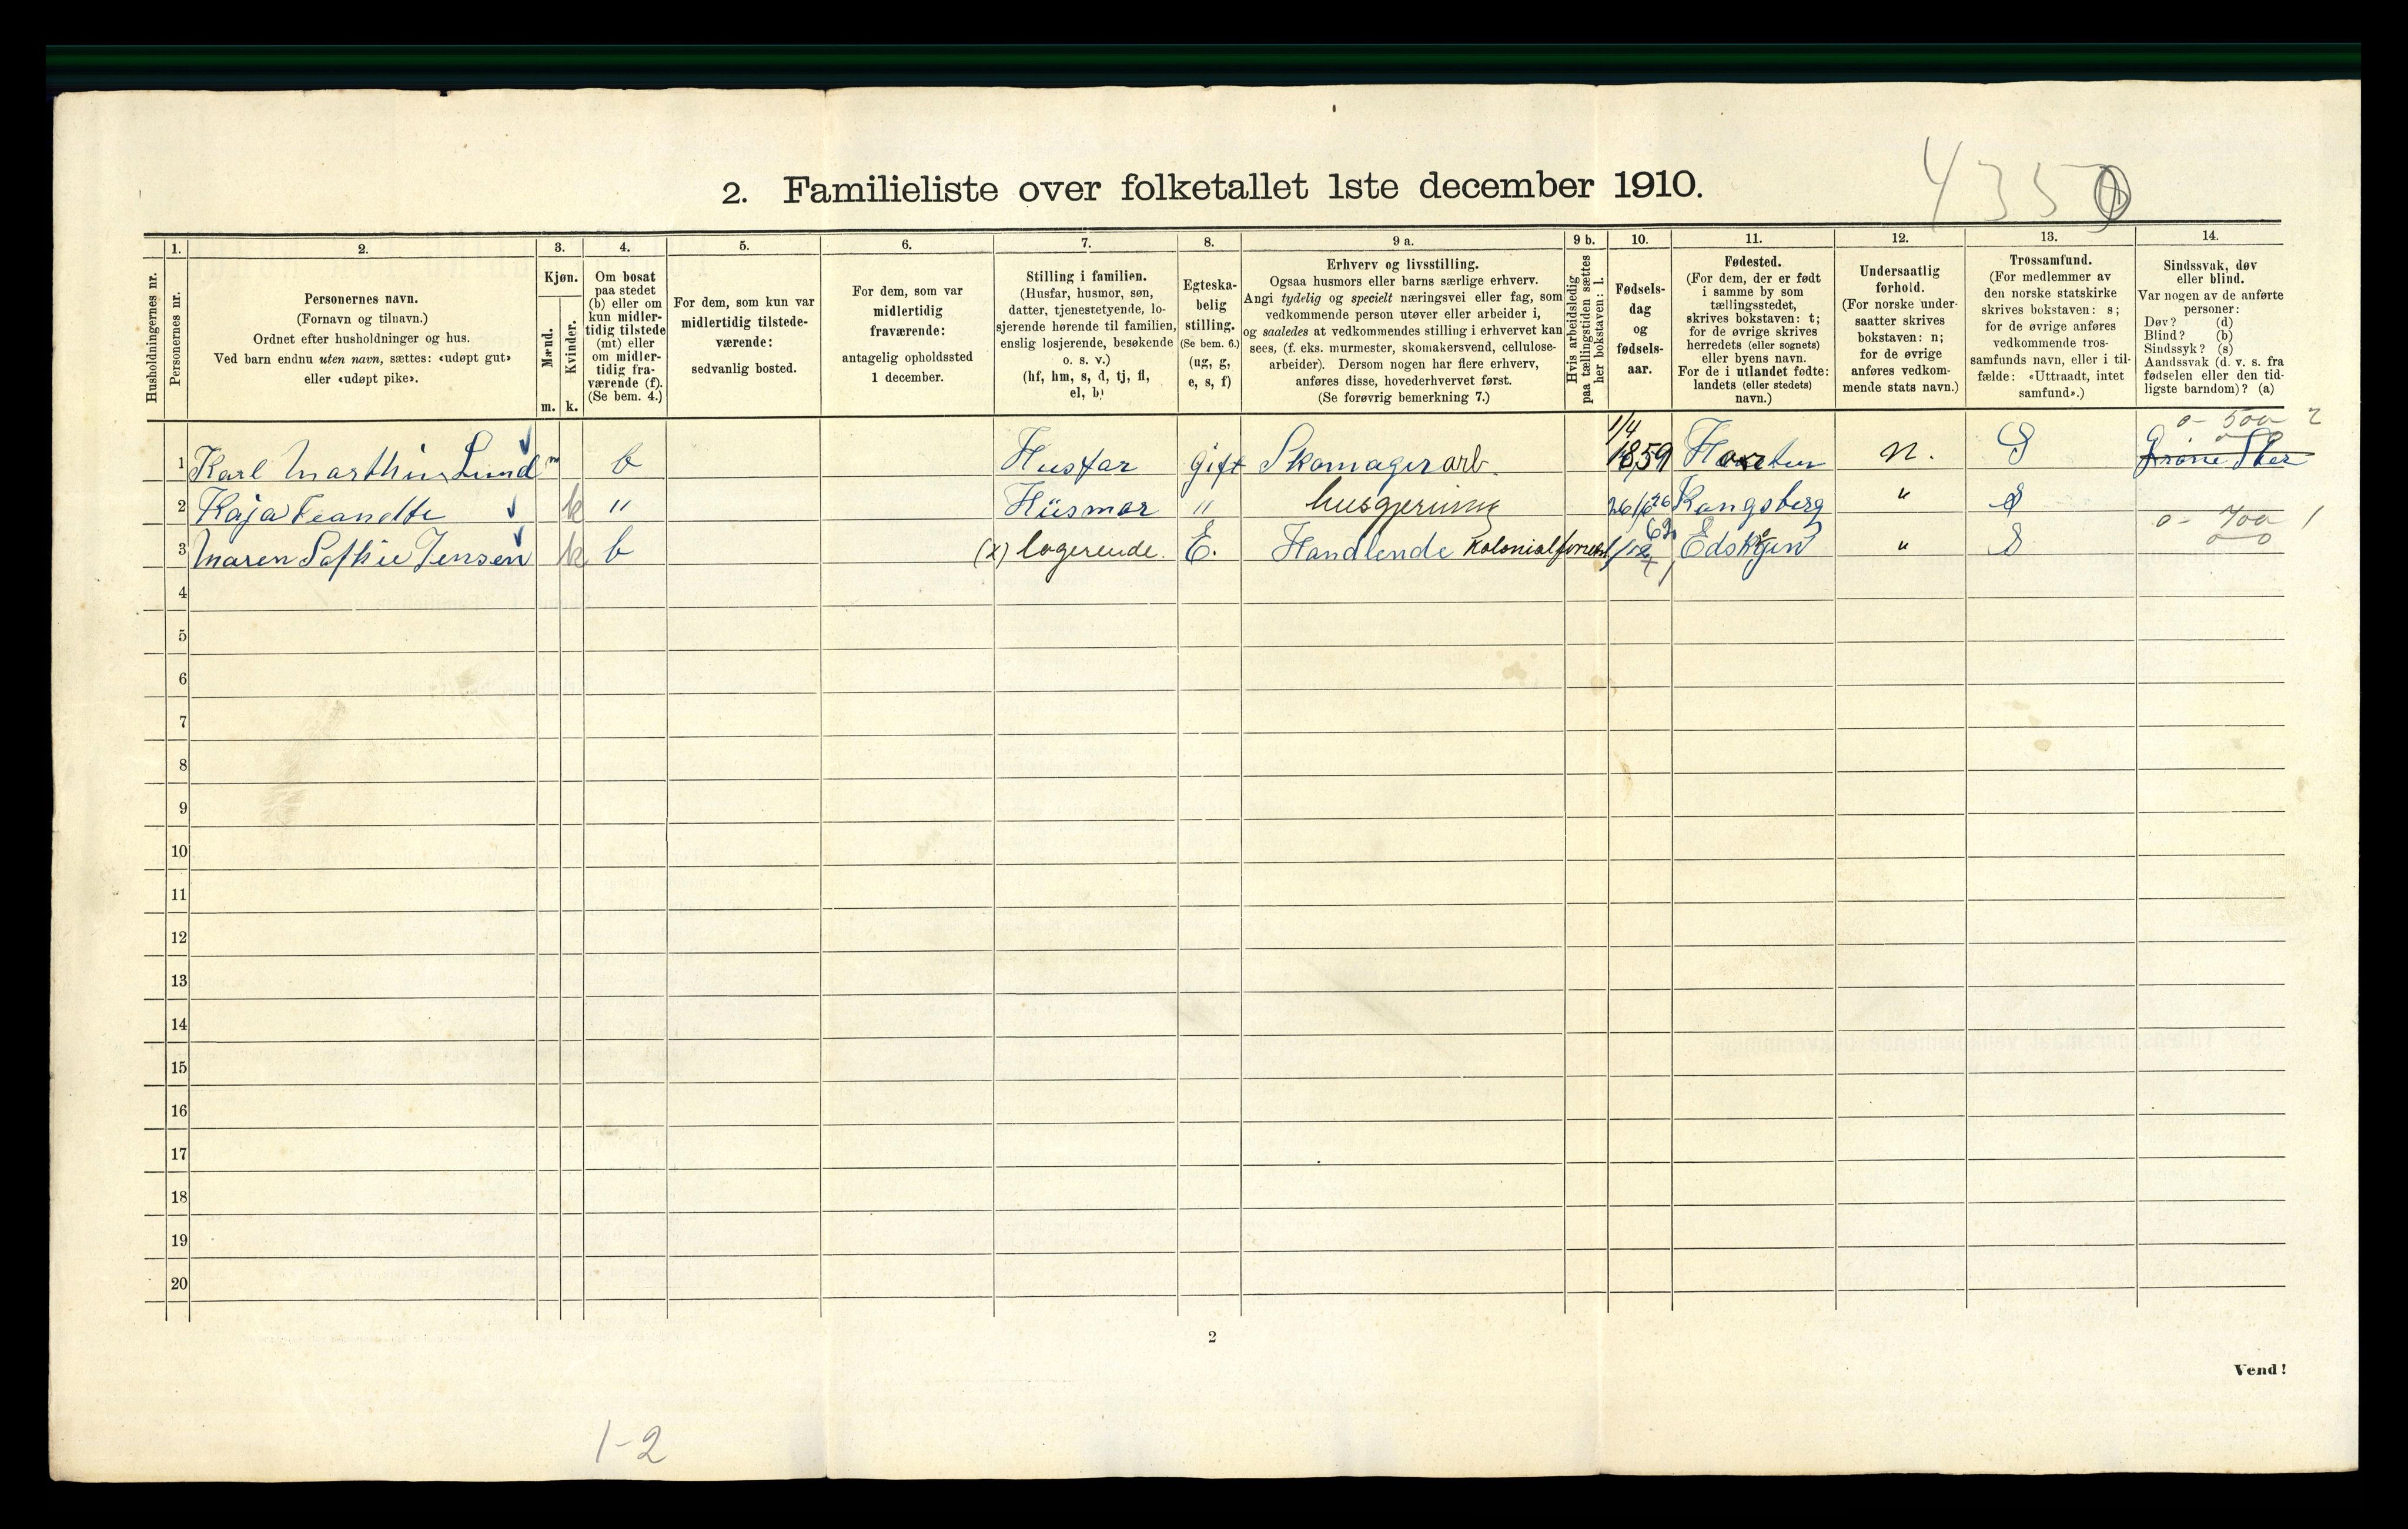 2. Familieliste over folketallet 1ste december 1910.
435
1. 2. 3. 4. 5. 6. 7. 8. 9 a. 9 b. 10. 11. 12. 13. 14.
Husholdningernes nr.
Personernes nr.
Personernes navn.
(Fornavn og tilnavn.)
Ordnet efter husholdninger og hus.
Ved barn endnu uten navn, sættes: «udøpt gut»
eller «udøpt pike».
Kjøn.
Mænd.
Kvinder.
m. k.
Om bosat
paa stedet
(b) eller om
kun midler-
tidig tilstede
(mt) eller
om midler-
tidig fra-
værende (f).
(Se bem. 4.)
For dem, som kun var
midlertidig tilstede-
værende:
sedvanlig bosted.
For dem, som var
midlertidig
fraværende:
antagelig opholdssted
1 december.
Stilling i familien.
(Husfar, husmor, søn,
datter, tjenestetyende, lo-
sjerende hørende til familien,
enslig losjerende, besøkende
o. s. v.)
(hf, hm, s, d, tj, fl,
el, b)
Egteska-
belig
stilling.
(Se bem. 6.)
(ug, g,
e, s, f)
Erhverv og livsstilling.
Ogsaa husmors eller barns særlige erhverv.
Angi tydelig og specielt næringsvei eller fag, som
vedkommende person utøver eller arbeider i,
og saaledes at vedkommendes stilling i erhvervet kan
sees, (f. eks. murmester, skomakersvend, cellulose-
arbeider). Dersom nogen har flere erhverv,
anføres disse, hovederhvervet først.
(Se forøvrig bemerkning 7.)
Hvis arbeidsledig
paa tællingstiden sættes
her bokstaven: l.
Fødsels-
dag
og
fødsels-
aar.
Fødested.
(For dem, der er født
i samme by som
tællingsstedet,
skrives bokstaven: t;
for de øvrige skrives
herredets (eller sognets)
eller byens navn.
For de i utlandet fødte:
landets (eller stedets)
navn.)
Undersaatlig
forhold.
(For norske under-
saatter skrives
bokstaven: n;
for de øvrige
anføres vedkom-
mende stats navn.)
Trossamfund.
(For medlemmer av
den norske statskirke
skrives bokstaven: s;
for de øvrige anføres
vedkommende tros-
samfunds navn, eller i til-
fælde: «Uttraadt, intet
samfund».)
Sindssvak, døv
eller blind.
Var nogen av de anførte
personer:
Døv? (d)
Blind? (b)
Sindssyk? (s)
Aandssvak (d. v. s. fra
fødselen eller den tid-
ligste barndom)? (a)
0 - 500 2
1 Karl Marthin Lund m b Husfar gift Skomagerarb. 1/4 1859 n. S
2 Kaja k " Husmor " husgjerning Kongsberg " S
0 - 700 1
3 Maren Sofhie Jensen k b (x) logerende. E. Handlende Kolonialforretn " S
4
5
6
7
8
9
10
11
12
13
14
15
16
17
18
19
20
2
Vend!
1-2